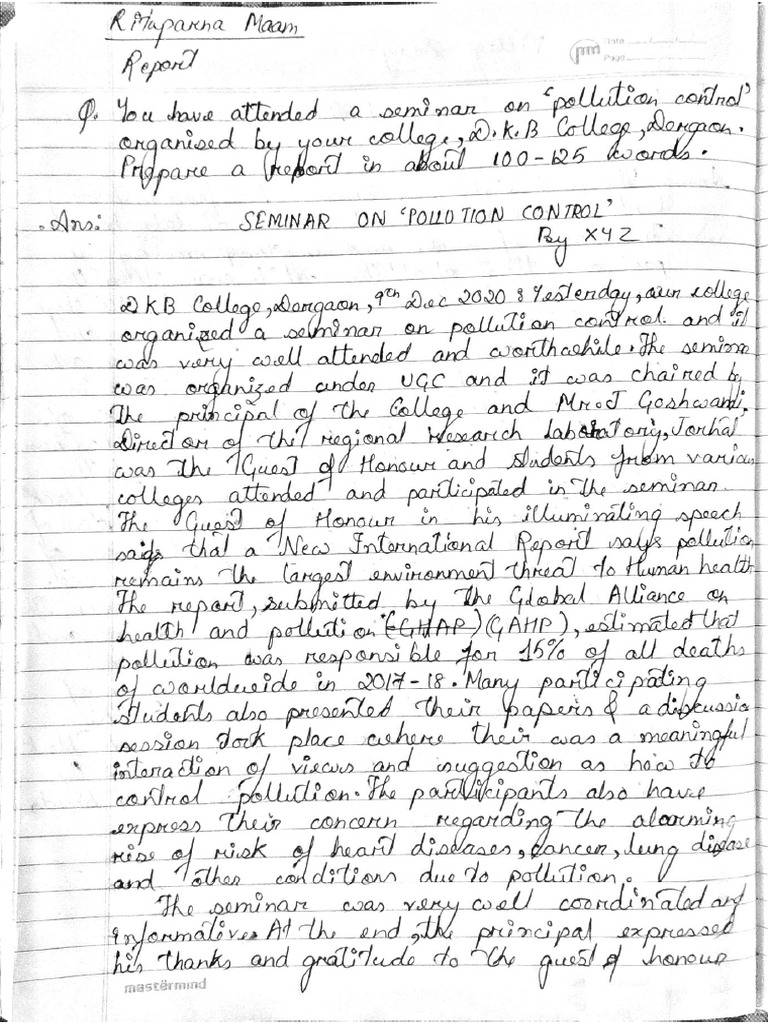 Rituparna Maam
pm Date
Page
Report
Q. You have attended a seminar on 'pollution control'
organised by your college, D.K.B College, Dergaon.
Prepare a report in about 100-125 words.
Ans: SEMINAR ON 'POLLUTION CONTROL'
By XYZ
DKB College, Dergaon, 9th Dec 2020 : Yesterday, our college
organized a seminar on pollution control. and it
was very well attended and worthwhile. The seminar
was organized under UGC and it was chaired by
the principal of the College and Mr. J Goshwami,
Director of the regional research laboratory, Jorhat
was the Guest of Honour and students from various
colleges attended and participated in the seminar.
The Guest of Honour in his illuminating speech
says that a New International Report says pollution
remains the largest environment threat to Human health
The report, submitted by the Global Alliance on
health and pollution (GHAP) (GAHP), estimated that
pollution was responsible for 15% of all deaths
of worldwide in 2017-18. Many participating
students also presented their papers & a discussion
session took place where their was a meaningful
interaction of views and suggestion as how to
control pollution. The participants also have
express their concern regarding the alarming
rise of risk of heart diseases, cancer, lung disease
and other conditions due to pollution.
The seminar was very well coordinated and
informative. At the end, the principal expressed
his thanks and gratitude to the guest of honour
mastermind